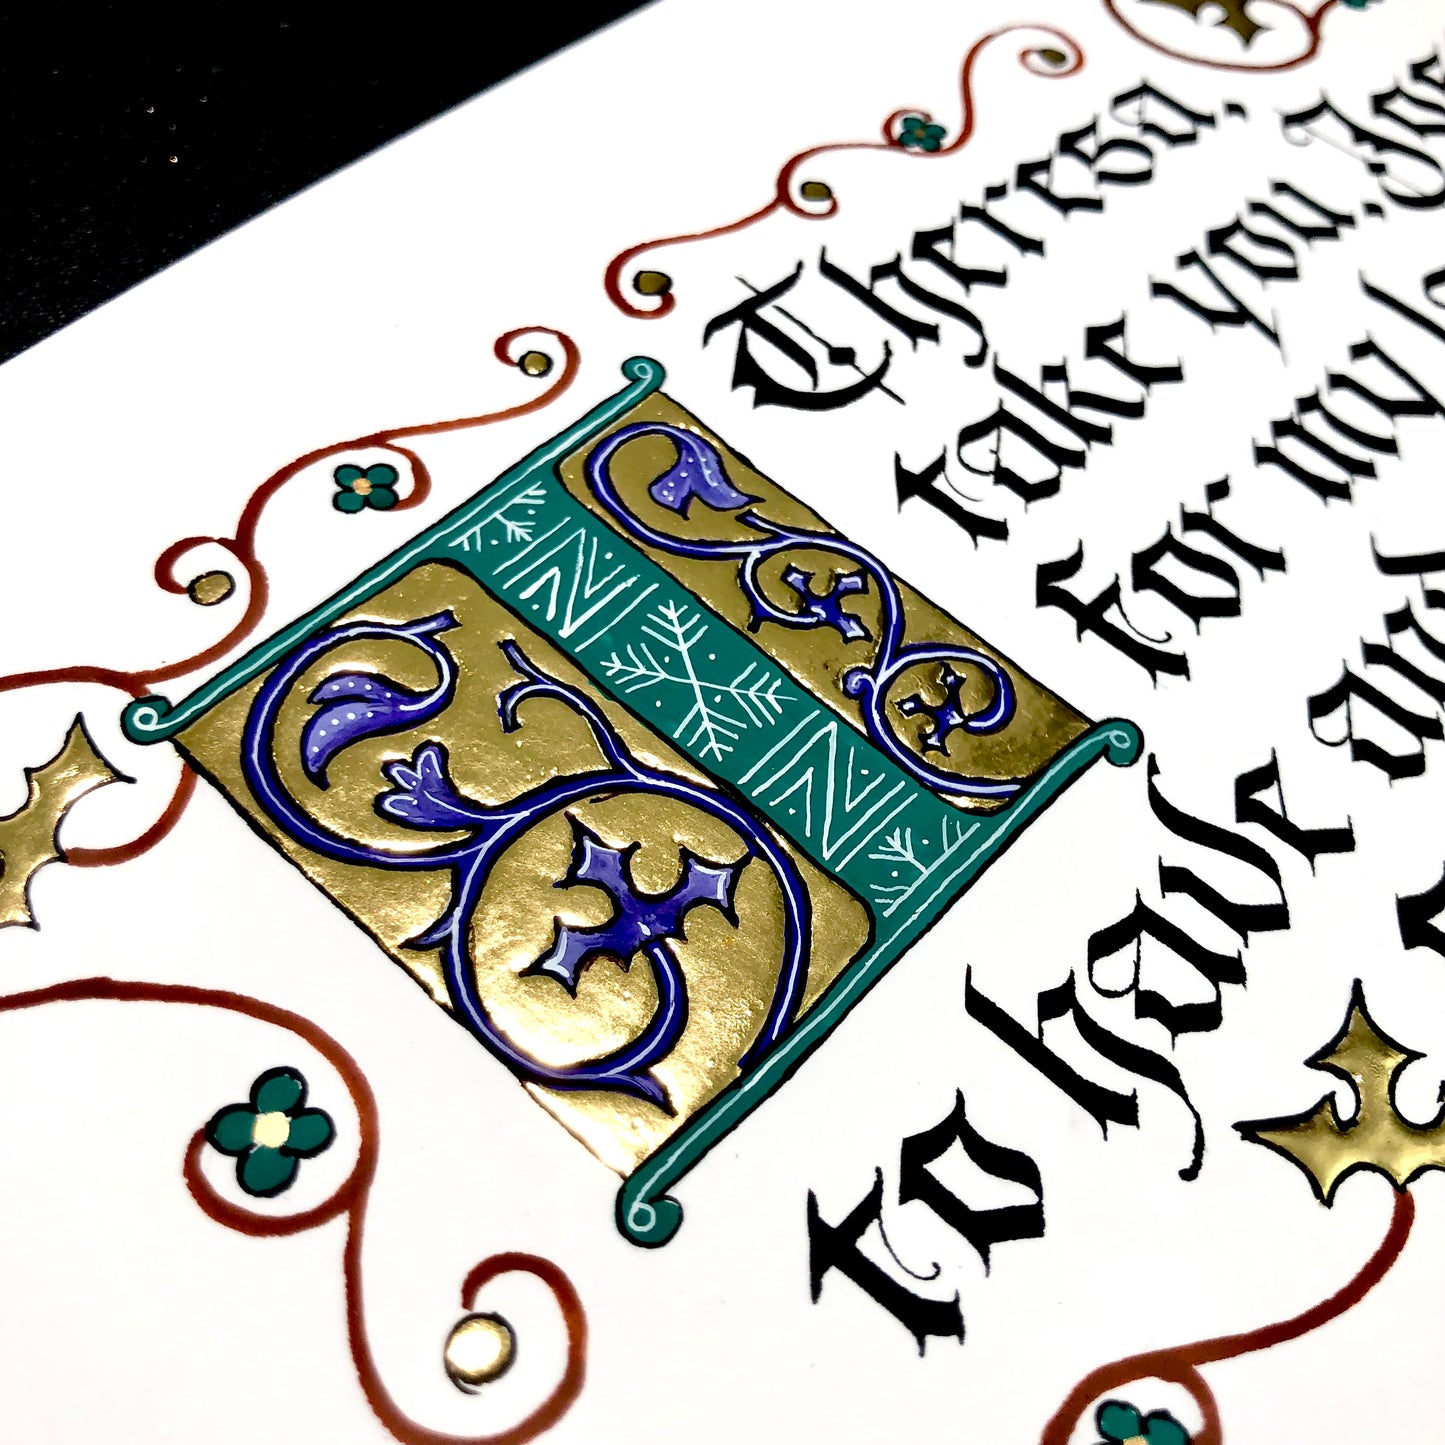 I
Theresa,
take you, Jos
for my
to have and